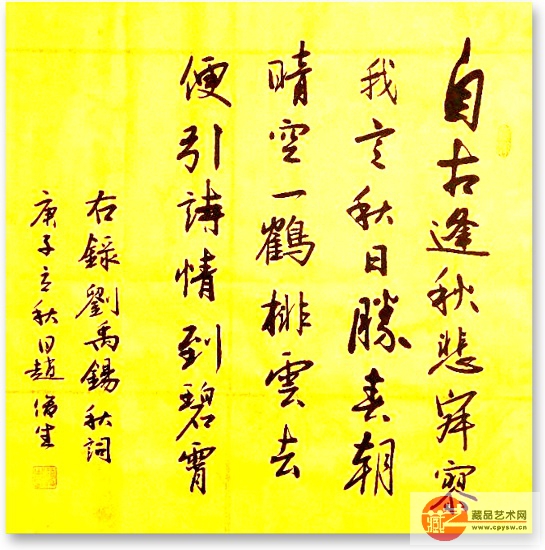 自古逢秋悲寂寥
我言秋日勝春朝
晴空一鶴排雲去
便引詩情到碧霄
右錄劉禹錫秋詞
庚子立秋日趙生
藏
藏品艺术网
www.cpysw.cn